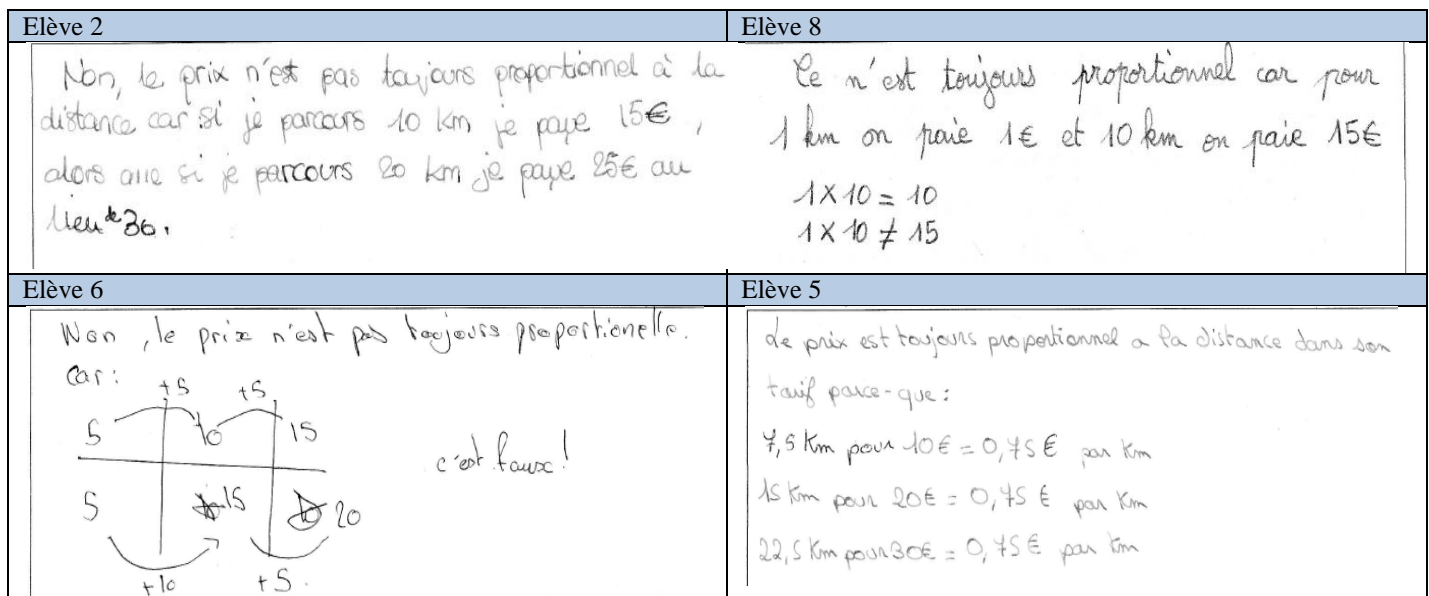 Elève 2
Non, le prix n'est pas toujours proportionnel à la
distance car si je parcours 10 km je paye 15€,
alors que si je parcours 20 km je paye 25€ au
lieu de 30.
Elève 8
Ce n'est toujours proportionnel car pour
1 km on paie 1€ et 10 km on paie 15€
1 x 10 = 10
1 x 10 ≠ 15
Elève 6
Non, le prix n'est pas toujours proportionelle.
Car:
+5 +5
5 10 15
5 15 20
+10 +5.
c'est faux!
Elève 5
Le prix est toujours proportionnel a la distance dans son
tarif parce-que:
7,5 Km pour 10€ = 0,75€ par Km
15 Km pour 20€ = 0,75 € par Km
22,5 Km pour 30€ = 0,75 € par km